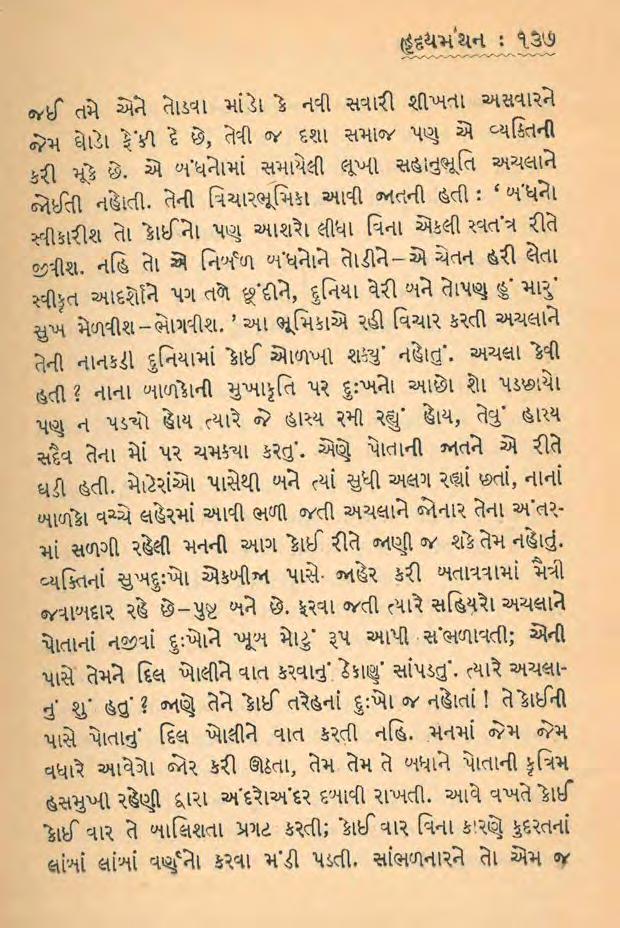 હૃદયમંથન : ૧૩૭
જઈ તમે એને તોડવા માંડો કે નવી સવારી શીખતા અસવારને
જેમ ઘોડો ફેંકી દે છે, તેવી જ દશા સમાજ પણ એ વ્યક્તિની
કરી મૂકે છે. એ બંધનોમાં સમાયેલી લૂખી સહાનુભૂતિ અચલાને
જોઈતી નહોતી. તેની વિચારભૂમિકા આવી જાતની હતી : ‘બંધનો
સ્વીકારીશ તો કોઈનો પણ આશરો લીધા વિના એકલી સ્વતંત્ર રીતે
જીવીશ. નહિ તો એ નિર્બળ બંધનોને તોડીને–એ ચેતન હરી લેતા
સ્વીકૃત આદર્શોને પગ તળે છૂંદીને, દુનિયા વેરી બને તોપણ હું મારું
સુખ મેળવીશ–ભોગવીશ.’ આ ભૂમિકાએ રહી વિચાર કરતી અચલાને
તેની નાનકડી દુનિયામાં કોઈ ઓળખી શક્યું નહોતું. અચલા કેવી
હતી? નાના બાળકોની મુખાકૃતિ પર દુઃખનો આછો શો પડછાયો
પણ ન પડ્યો હોય ત્યારે જે હાસ્ય રમી રહ્યું હોય, તેવું હાસ્ય
સદૈવ તેના મોં પર ચમક્યા કરતું. એણે પોતાની જાતને એ રીતે
ઘડી હતી. મોટેરાંઓ પાસેથી બને ત્યાં સુધી અલગ રહ્યાં છતાં, નાનાં
બાળકો વચ્ચે લહેરમાં આવી ભળી જતી અચલાને જોનાર તેના અંતર-
માં સળગી રહેલી મનની આગ કોઈ રીતે જાણી જ શકે તેમ નહોતું.
વ્યક્તિનાં સુખદુઃખો એકબીજા પાસે જાહેર કરી બતાવવામાં મૈત્રી
જવાબદાર રહે છે–પુષ્ટ બને છે. ફરવા જતી ત્યારે સહિયરો અચલાને
પોતાનાં નજીવાં દુઃખોને ખૂબ મોટું રૂપ આપી સંભળાવતી; એની
પાસે તેમને દિલ ખોલીને વાત કરવાનું ઠેકાણું સાંપડતું. ત્યારે અચલા-
નું શું હતું? જાણે તેને કોઈ તરેહનાં દુઃખો જ નહોતાં! તે કોઈની
પાસે પોતાનું દિલ ખોલીને વાત કરતી નહિ. મનમાં જેમ જેમ
વધારે આવેગો જોર કરી ઊઠતા, તેમ તેમ તે બધાને પોતાની કૃત્રિમ
હસમુખી રહેણી દ્વારા અંદરોઅંદર દબાવી રાખતી. આવે વખતે કોઈ
કોઈ વાર તે બાલિશતા પ્રગટ કરતી; કોઈ વાર વિના કારણે કુદરતનાં
લાંબાં લાંબાં વર્ણનો કરવા મંડી પડતી. સાંભળનારને તો એમ જ